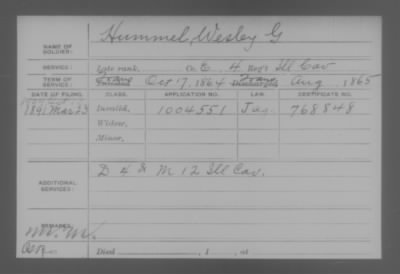 Hummel, Wesley G
NAME OF SOLDIER:
SERVICE: Late rank, Co. E, 4 Reg't Ill Cav
TERM OF SERVICE: Oct 7, 1864 Aug 1865
DATE OF FILING. CLASS. APPLICATION NO. LAW. CERTIFICATE NO.
1891 Mar 23 Invalid, 1004551 768848
Widow,
Minor,
ADDITIONAL SERVICES: D 4 & M 12 Ill Cav.
REMARKS:
Died , 1 , at